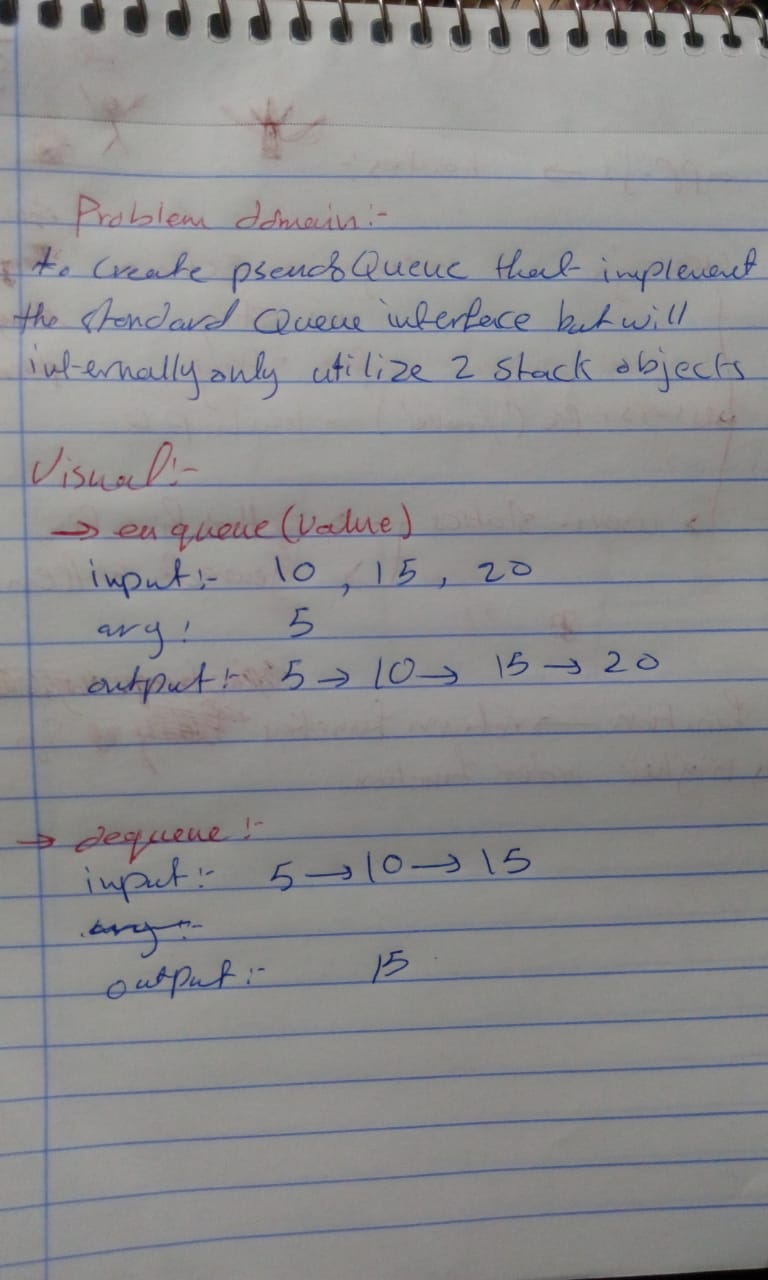 Problem domain:-
to create pseudoQueue that implement
the standard Queue interface but will
internally only utilize 2 stack objects
Visual:-
→ enqueue (value)
input:- 10 , 15 , 20
arg: 5
output:- 5 → 10 → 15 → 20
→ dequeue:-
input:- 5 → 10 → 15
arg:-
output:- 15